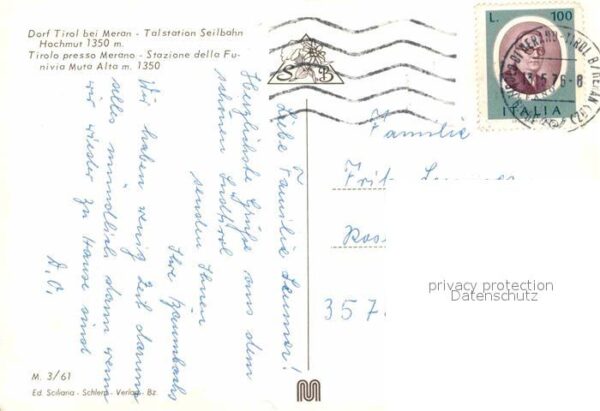 Dorf Tirol bei Meran - Talstation Seilbahn
Hochmut 1350 m.
Tirolo presso Merano - Stazione della Fu-
nivia Muta Alta m. 1350
S B
L. 100
ITALIA
13.5.76-8
Liebe Familie
Herzlichste Grüße aus dem
schönen Südtirol
senden Ihnen
Ihre
Wir haben wenig Zeit darum
alles mündlich dann wenn
wir wieder zu Hause sind
D.O.
Familie
Fritz
357
privacy protection
Datenschutz
M. 3/61
Ed. Sciliaria - Schlern - Verlag - Bz.